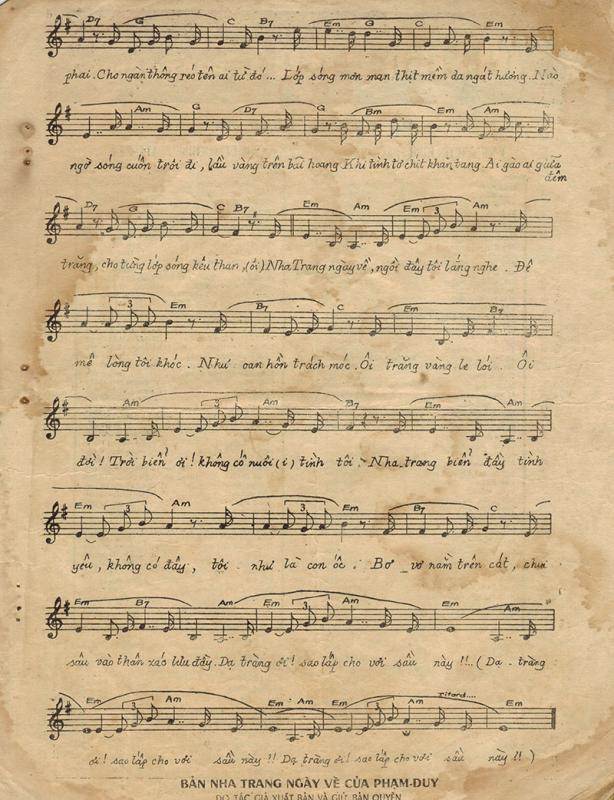 D7 G C B7 Em G C Em
phai. Cho ngàn thông réo tên ai từ đó... Lớp sóng mơn man thịt mềm da ngát hương. Nào
Am G D7 G Bm Em Am
ngờ sóng cuốn trôi đi, lầu vàng trên bãi hoang Khi tình tơ chít khăn tang Ai gào ai giữa
đêm
D7 G C B7 Em Am Em Am
trăng, cho từng lớp sóng kêu than, (ôi) Nha Trang ngày về, ngồi đây tôi lắng nghe. Đê
3
3 Em B7 C Em
mê lòng tôi khóc. Như oan hồn trách móc. Ôi trăng vàng le lói. Ôi
Am 3 Am B7 Em Am
đời! Trời biển ơi! không cố nuôi (i) tình tôi. Nha_trang biển đầy tình
Em 3 Am 3 Em B7 C
yêu, không có đây, tôi như là con ốc. Bơ_vơ nằm trên cát, chui
Em B7 Am Em 3 Am Em Am
sâu vào thân xác lưu đầy. Dạ tràng ơi! sao lấp cho vơi sầu này!!..(Dạ - tràng
Em 3 Am Em Am Em 3 Am ritard.... Em
ơi! sao lấp cho vơi sầu này!! Dạ tràng ơi! sao lấp cho vơi sầu này!!)
BẢN NHA TRANG NGÀY VỀ CỦA PHẠM-DUY
DO TÁC GIẢ XUẤT BẢN VÀ GIỮ BẢN QUYỀN